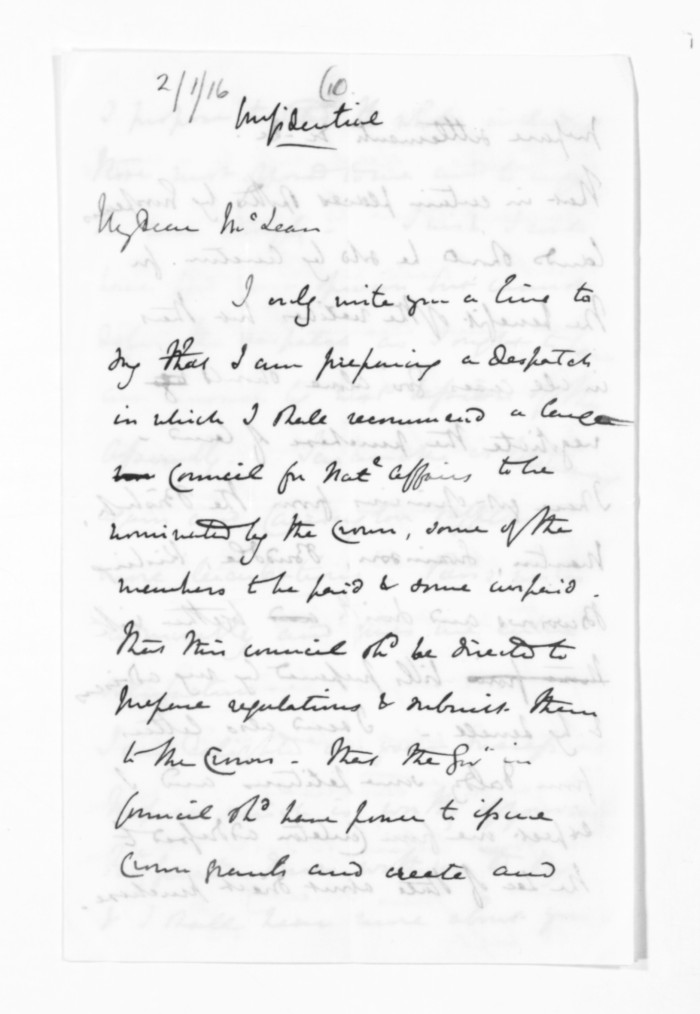 2/1/16 (10
Confidential
My dear McLean
I only write you a line to
say that I am preparing a despatch
in which I shall recommend a
Council for Natve affairs to be
nominated by the Crown, some of the
members to be paid & some unpaid.
That this council shd be directed to
prepare regulations & submit them
to the Crown - That the Govr in
Council shd have power to issue
Crown grants and create and